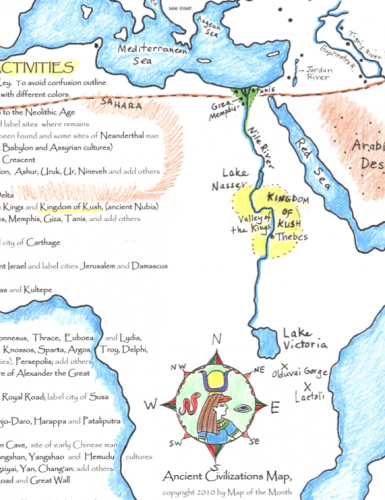 see inset
Aegean
Sea
Mediterranean
Sea
Tigris River
Euphrates R.
Jordan
River
ACTIVITIES
Key. To avoid confusion outline
with different colors.
s to the Neolithic Age
d label sites where remains
been found and some sites of Neanderthal man
Babylon and Assyrian cultures)
Crescent
lon, Ashur, Uruk, Ur, Nineveh and add others
Delta
e Kings and Kingdom of Kush, (ancient Nubia)
es, Memphis, Giza, Tanis, and add others
d city of Carthage
nt Israel and label cities Jerusalem and Damascus
as and Kultepe
SAHARA
Tanis
Giza
Memphis
Nile River
Red Sea
Arabi
Des
Lake
Nasser
KINGDOM
OF
KUSH
Valley of
the Kings
Thebes
Lake
Victoria
Olduvai Gorge
X
X
Laetoli
onnesus, Thrace, Euboea and Lydia,
Knossos, Sparta, Argos, Troy, Delphi,
ies), Persepolis; add others
re of Alexander the Great
Royal Road; label city of Susa
njo-Daro, Harappa and Pataliputra
n Cave, site of early Chinese man
ongshan, Yangshao and Hemudu cultures
gziyai, Yan, Chang'an, add others
oad and Great Wall
N
NE
E
SE
S
SW
W
NW
Ancient Civilizations Map,
copyright 2010 by Map of the Month